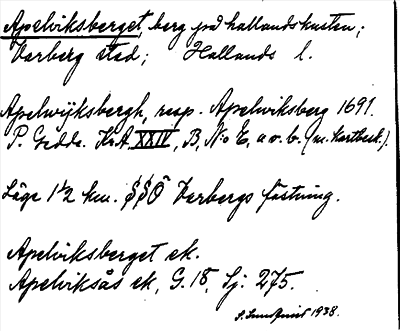 Apelviksberget, berg på hallandskusten;
Varberg stad; Hallands l.
Apelwijksbergh, resp. Apelwiksberg 1691.
P. Gedda. KrA XXIV, B, N:o E, a o. b. (m. kartbeskr.).
Läge 1½ km. SSO Varbergs fästning.
Apelviksberget ek.
Apelviksås ek, G.18, Sj: 275.
1938.